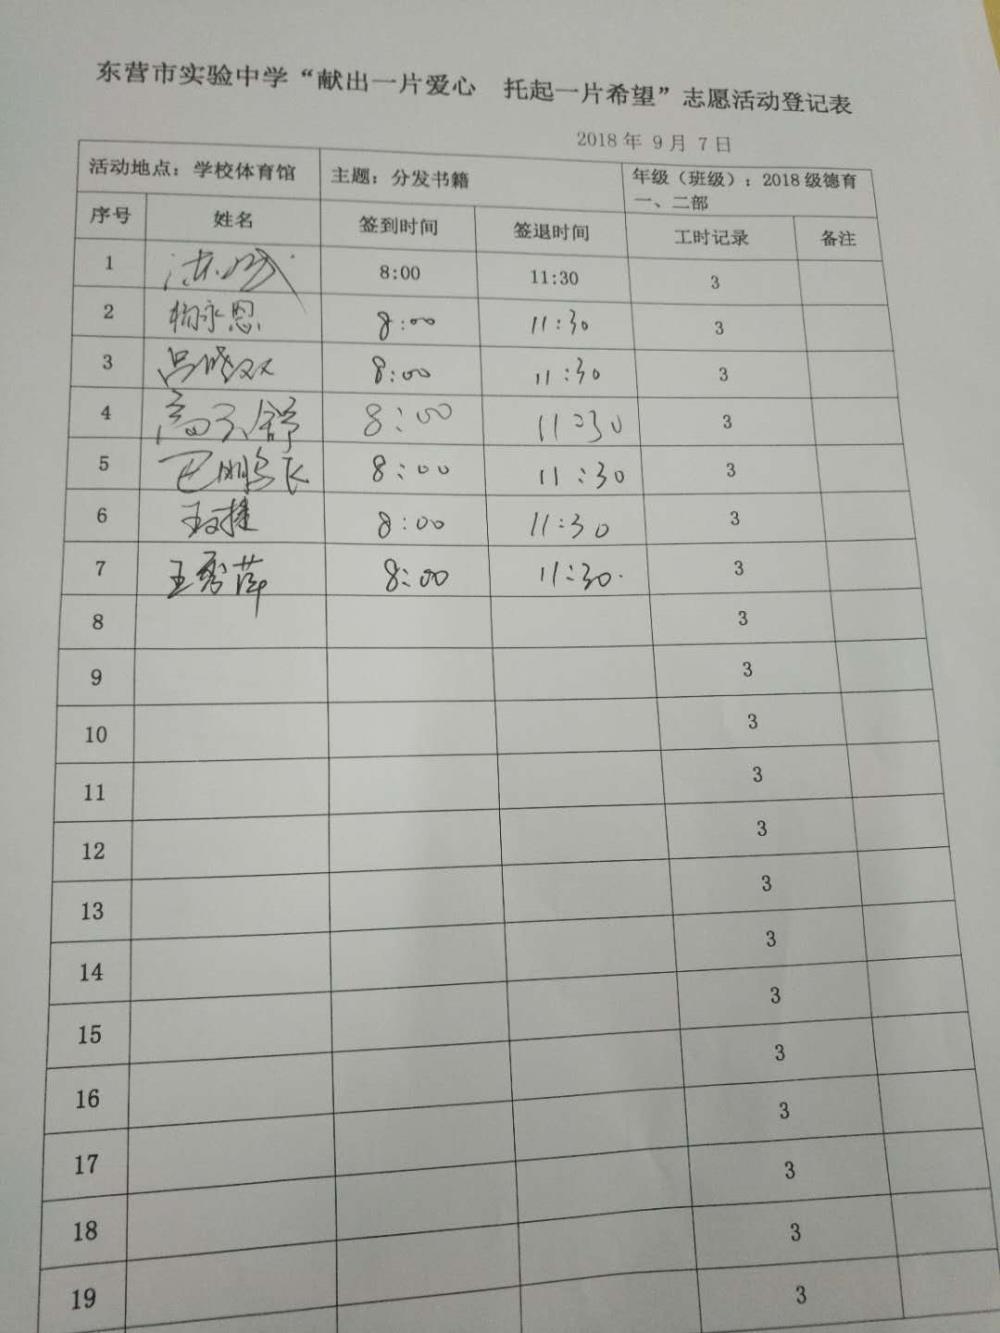 东营市实验中学“献出一片爱心 托起一片希望”志愿活动登记表
2018 年 9 月 7 日
活动地点：学校体育馆 主题：分发书籍 年级（班级）：2018 级德育一、二部
序号 姓名 签到时间 签退时间 工时记录 备注
1 8:00 11:30 3
2 杨永恩 8:00 11:30 3
3 吕晓双 8:00 11:30 3
4 高子舒 8:00 11:30 3
5 巴鹏飞 8:00 11:30 3
6 8:00 11:30 3
7 王秀萍 8:00 11:30. 3
8 3
9 3
10 3
11 3
12 3
13 3
14 3
15 3
16 3
17 3
18 3
19 3